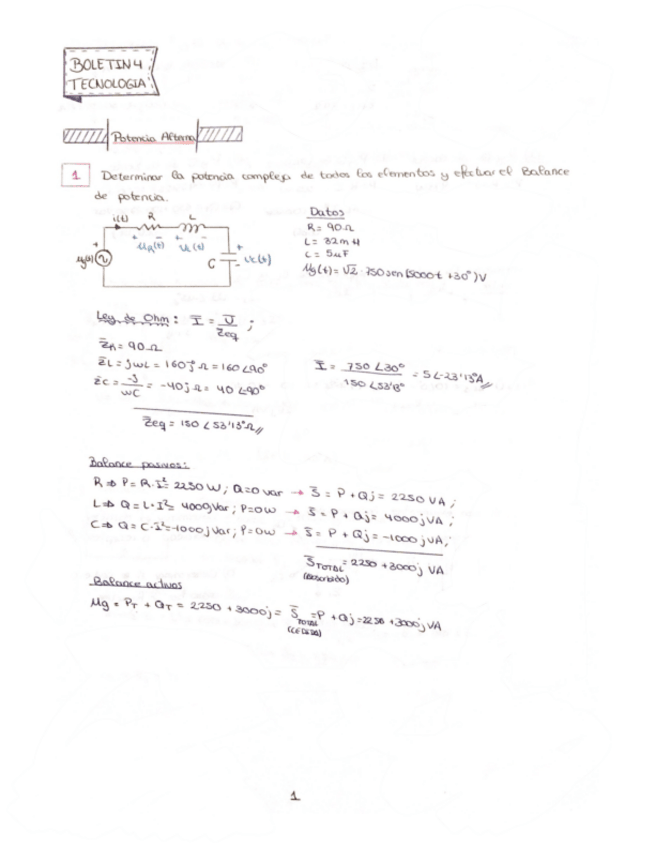 BOLETIN 4
TECNOLOGIA
Potencia Alterna
1 Determinar la potencia compleja de todos los elementos y efectuar el Balance
de potencia.
i(t) R L
+ - + -
u_R(t) u_L(t)
+ u_g(t) C + - u_c(t)
Datos
R = 90 Ω
L = 32 mH
C = 5 μF
u_g(t) = √2 · 750 sen (5000t + 30°) V
Ley de Ohm : I = U / Zeq ;
Z_R = 90 Ω
Z_L = jωL = 160j Ω = 160 ∠90°
Z_C = -j / ωC = -40j Ω = 40 ∠-90°
Zeq = 150 ∠53'13° Ω //
I = 750 ∠30° / 150 ∠53'13° = 5 ∠-23'13° A //
Balance pasivos:
R ⇒ P = R·I² = 2250 W ; Q = 0 var → S = P + Qj = 2250 VA ;
L ⇒ Q = L·I² = 4000j Var ; P = 0 W → S = P + Qj = 4000j VA ;
C ⇒ Q = C·I² = -1000j Var ; P = 0 W → S = P + Qj = -1000j VA ;
S TOTAL = 2250 + 3000j VA
(Absorbido)
Balance activos
Ug = P_T + Q_T = 2250 + 3000j = S TOTAL = P + Qj = 2250 + 3000j VA
(CEDIDA)
1